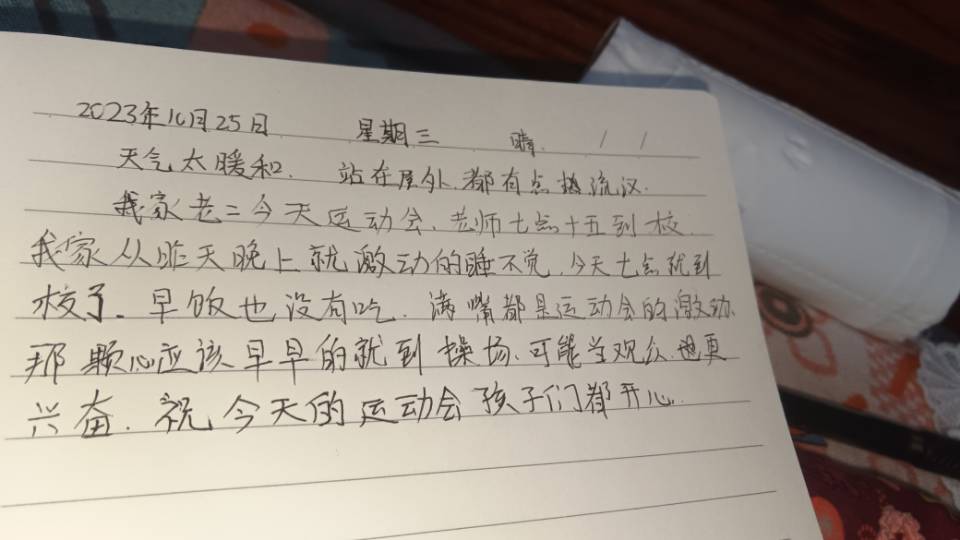 2023年10月25日 星期三 晴
天气太暖和. 站在屋外.都有点热流汉.
我家老二今天运动会.老师七点十五到校.
我家从昨天晚上就激动的睡不觉.今天七点就到
校了.早饭也没有吃.满嘴都是运动会的激动.
那颗心应该早早的就到操场.可能当观众.更
兴奋.祝今天的运动会孩子们都开心.